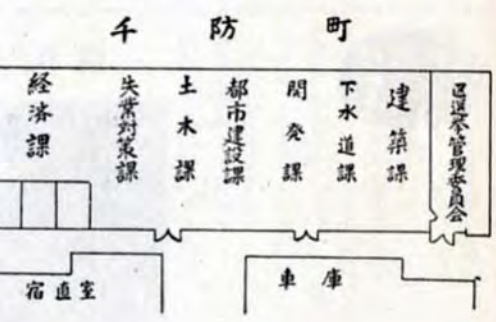 千防町
経済課
失業対策課
土木課
都市建設課
開発課
下水道課
建築課
区選挙管理委員会
宿直室
車庫